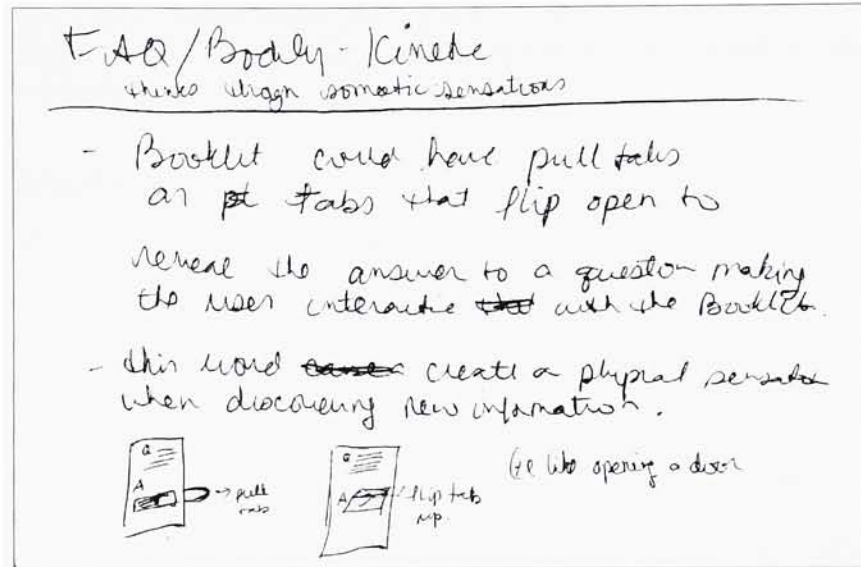 FAQ/Bodily-Kinetic
thinks through somatic sensations
- Booklet could have pull tabs
or tabs that flip open to
reveal the answer to a question making
the user interactive with the Booklet.
- this would create a physical sensation
when discovering new information.
Q
A
→ pull
tab
Q
A
flip tab
up.
like opening a door